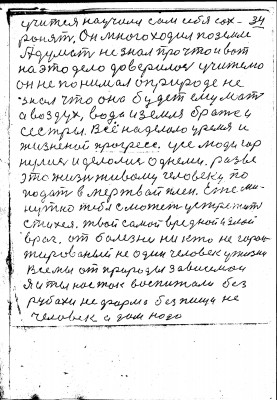 учится научила сам себя сох- 34
ронят, Он много ходил по земле
Я думат не знал про что и вот
на это дело доверился учителю
он не понимал о природе не
знал что она будет ему мат
а воздух, вода и земля братя и
сестры. Всё наделало время и
жизненой прогресс. усе моды гор
и делалис однеми, разве
это жизн живому человеку по
подат в мертвай плен. Еже ми-
нутно тебя сможет
стихея. твой самой вредной и злой
враг, от болезни ни кто не гаран
тированый не один человек у жизни
Все мы от природы зависемои
Я и ты костюм воспитали без
рубахи не форма без пищи не
человек а дом надо